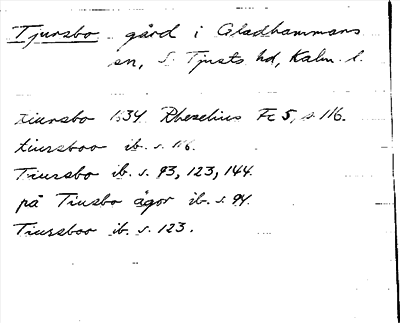 Tjursbo gård i Gladhammars
sn, S. Tjusts hd, Kalm. l.
tiursbo 1634 Rhezelius Fc 5, s. 116.
tiursboo ib. s. 116.
Tiursbo ib. s. 93, 123, 144.
på Tiusbo ägor ib. s. 94.
Tiursboo ib. s. 123.